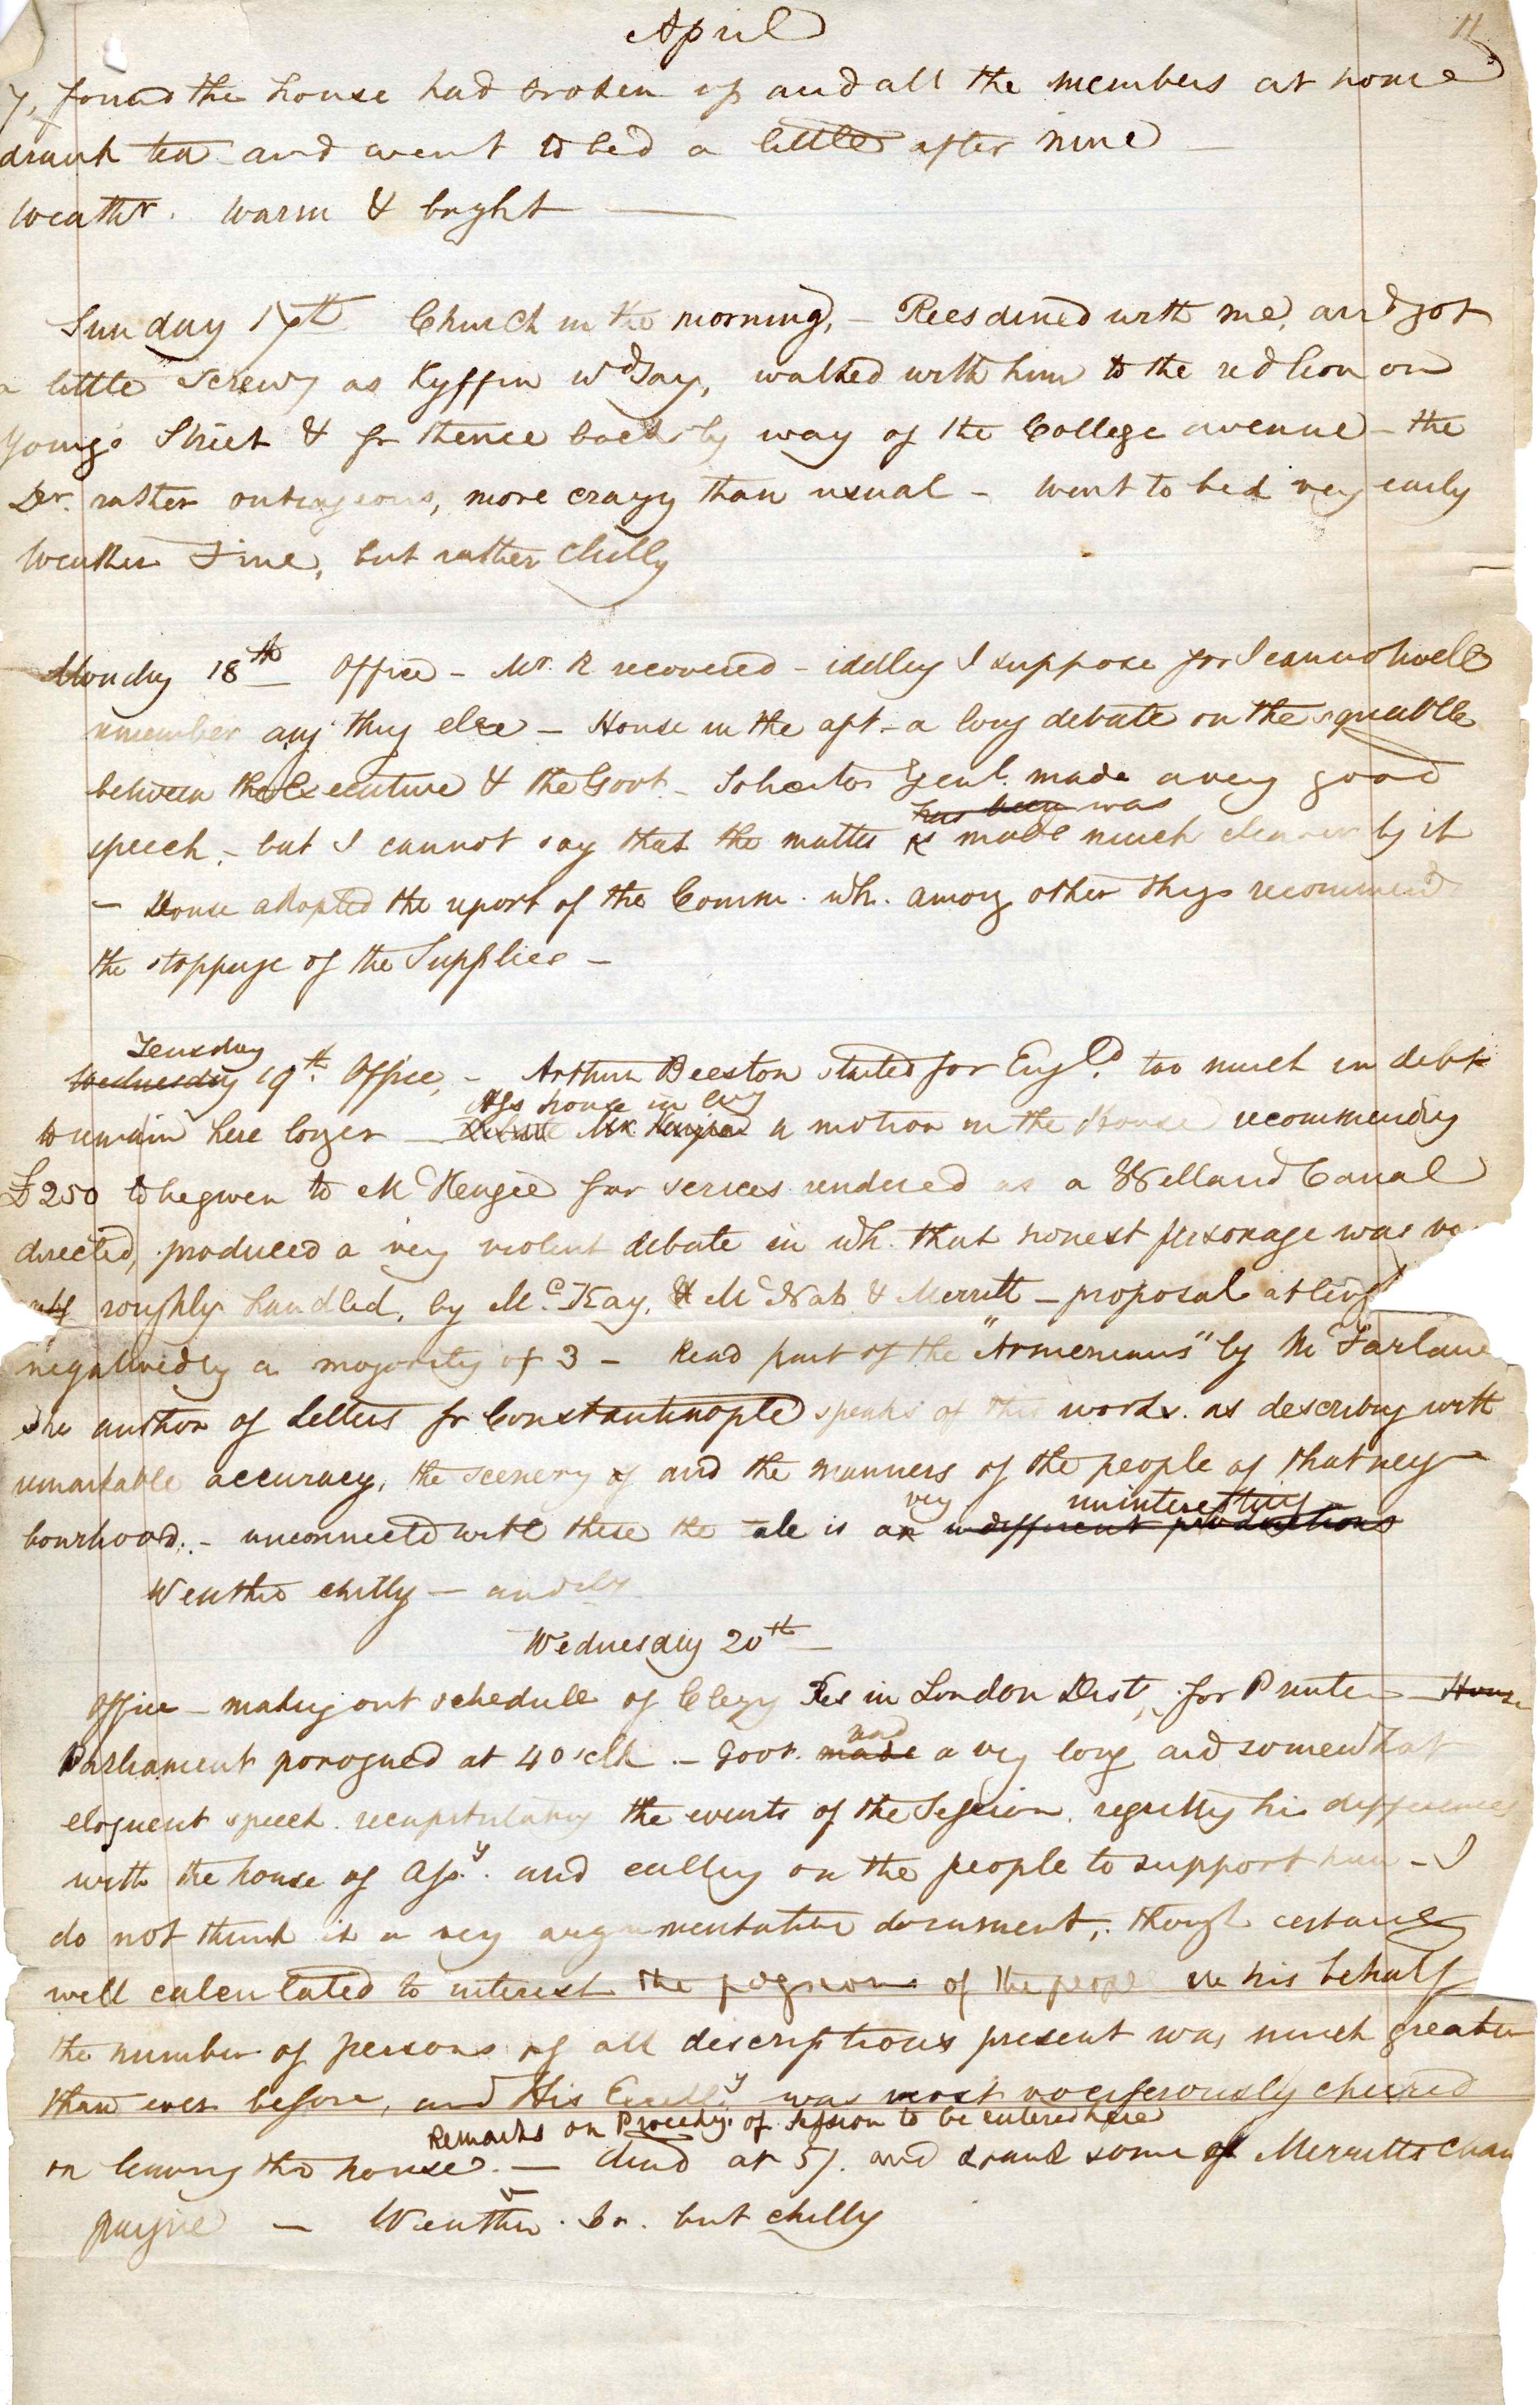 April
11
7, found the house had broken up and all the members at home
drank tea and went to bed a little after nine —
Weathr. Warm & bright —
Sunday 17th Church in the morning, – Rees dined with me, and got
a little screwy as Kyffin wd say, walked with him to the red lion on
Yonge Street & fr thence back by way of the College avenue – the
Dr. rather outrageous, more crazy than usual – went to bed very early
Weather Fine, but rather chilly
Monday 18th Office – Mr. R recovered – iddley I suppose for I cannot well
remember any thing else – House in the aft – a long debate on the squabble
between the Executive & the Govt – Solicitor Genl. made a very good
has been was
speech, – but I cannot say that the matter is made much clearer by it
– House adopted the report of the Comm. wh. among other thgs recommends
the stoppage of the Supplies –
Teusday
Wednesday 19th. Office, – Arthur Beeston started for Engld. too much in debt
Ass house in evg
to remain here longer — Debate a motion in the House recommending
£250 to be given to McKenzie for serices rendered as a Welland Canal
directed, produced a very violent debate in wh. that honest personage was
roughly handled, by Mc.Kay, & McNab & Merritt – proposal at
negatived by a majority of 3 – Read part of the "Armenians" by McFarlane
the author of Letters fr Constantinople speaks of this work. as describg with
remarkable accuracy, the scenery of and the manners of the people of that neigh
very uninteresting
bourhood. – unconnected with these the tale is an indifferent productions
Weather chilly –
Wednesday 20th –
Office – making out schedule of Clergy Res in London Dist, for Printer – House
had
Parliament porogued at 4 oclk – Govr. made a vey long and somewhat
eloquent speech recapitulating the events of the Session, regrettg his differences
with the house of Assy. and callng on the people to support him – I
do not think it a very argumentative document, though certainly
well calculated to interest the of the people in his behalf
the number of persons of all descriptions present was much greater
than ever before, and His Excelly was most vociferously cheered
Remarks on Proceedgs. of Session to be entered here
on leaving the house. — dined at 5/. and drank some of Merritts cham
pagne — Weather. Br. but chilly